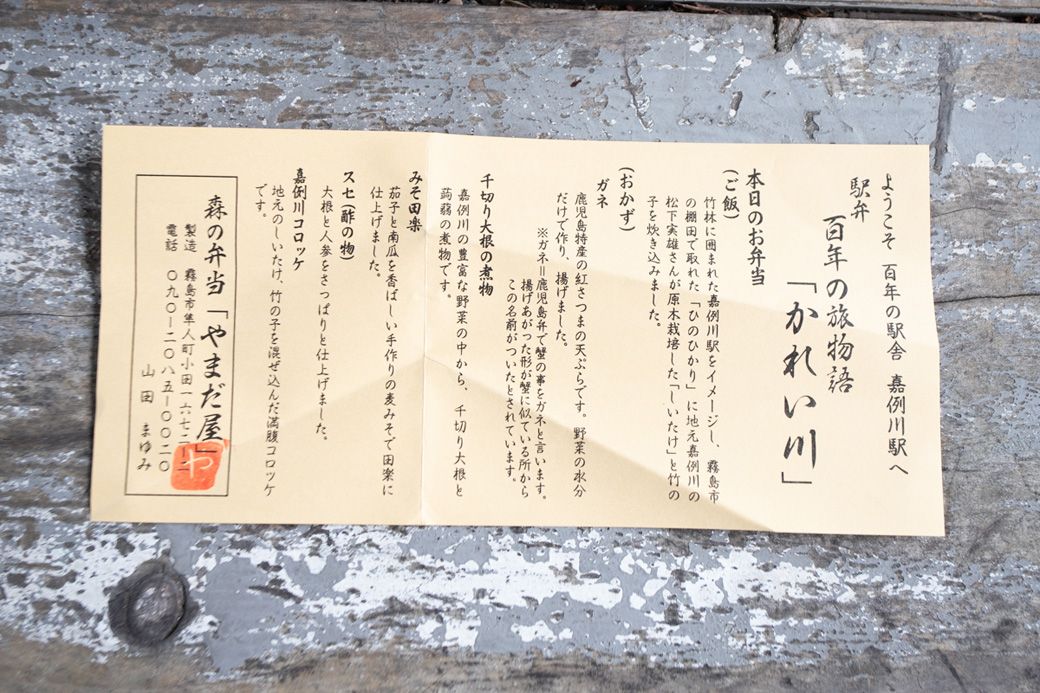 ようこそ 百年の駅舎 嘉例川駅へ
駅弁
百年の旅物語
「かれい川」
本日のお弁当
(ご飯)
竹林に囲まれた嘉例川駅をイメージし、霧島市
の棚田で取れた「ひのひかり」に地元嘉例川の
松下実雄さんが原木栽培した「しいたけ」と竹の
子を炊き込みました。
(おかず)
ガネ
鹿児島特産の紅さつまの天ぷらです。野菜の水分
だけで作り、揚げました。
※ガネ=鹿児島弁で蟹の事をガネと言います。
揚げあがった形が蟹に似ている所から
この名前がついたとされています。
千切り大根の煮物
嘉例川の豊富な野菜の中から、千切り大根と
蒟蒻の煮物です。
みそ田楽
茄子と南瓜を香ばしい手作りの麦みそで田楽に
仕上げました。
スセ(酢の物)
大根と人参をさっぱりと仕上げました。
嘉例川コロッケ
地元のしいたけ、竹の子を混ぜ込んだ満腹コロッケ
です。
森の弁当「やまだ屋」
製造 霧島市隼人町小田一六七二-二
電話 〇九〇-二〇八五-〇〇二〇
山田 まゆみ
や